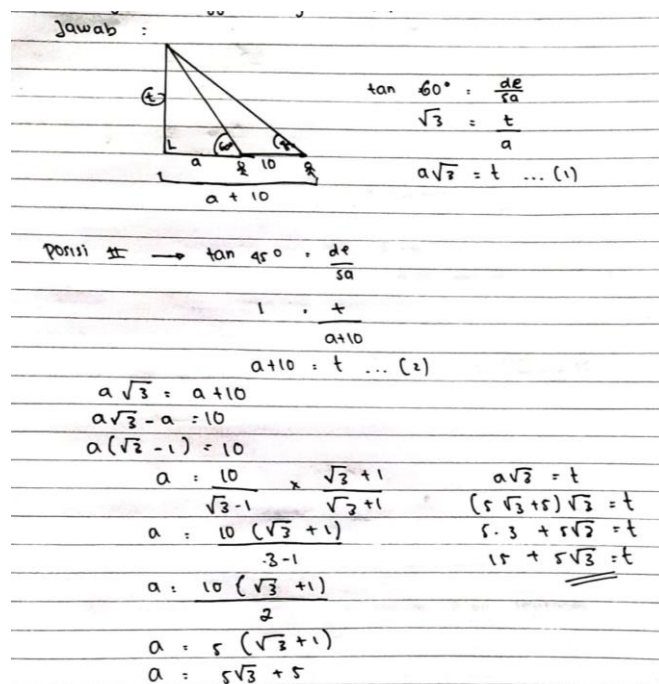 Jawab :
t
60°
45°
a
10
a + 10
tan 60° = de/sa
√3 = t/a
a√3 = t ... (1)
Posisi II → tan 45° = de/sa
1 = t/a+10
a+10 = t ... (2)
a√3 = a+10
a√3 - a = 10
a(√3 - 1) = 10
a = 10/√3-1 × √3+1/√3+1
a = 10 (√3 + 1)/3-1
a = 10 (√3 + 1)/2
a = 5 (√3 + 1)
a = 5√3 + 5
a√3 = t
(5√3+5)√3 = t
5.3 + 5√3 = t
15 + 5√3 = t